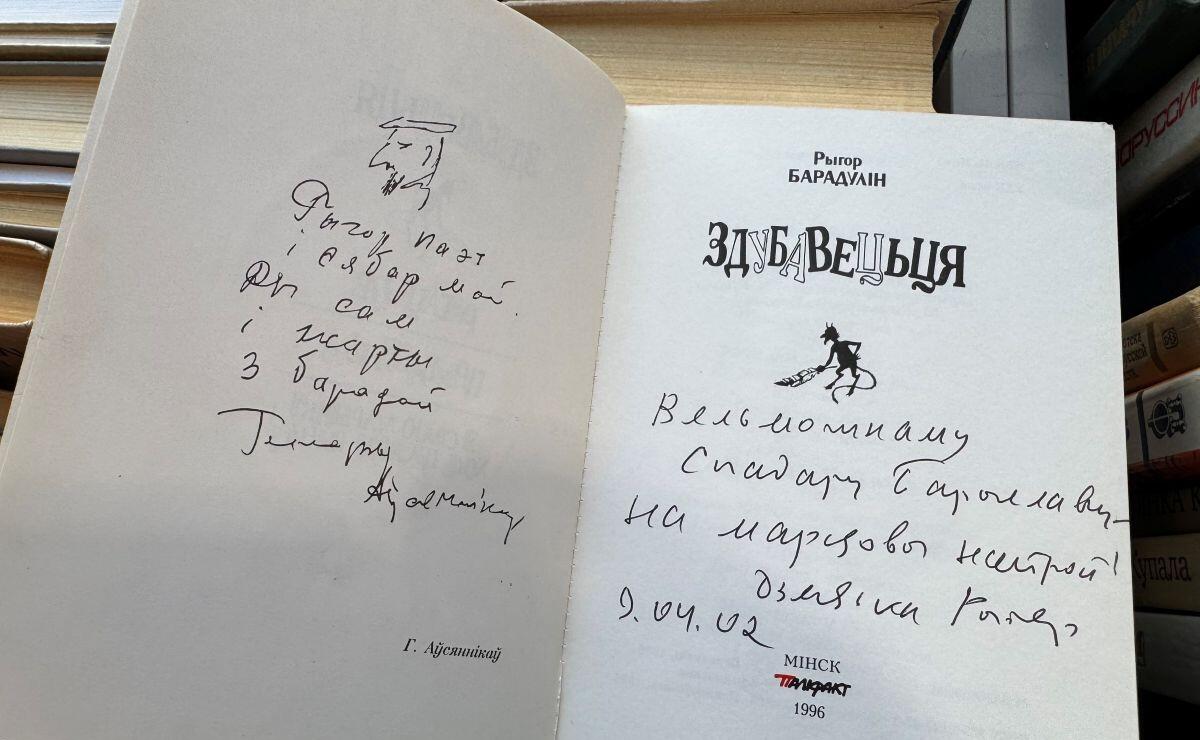 Рыгор паэт
і сябар мой.
Ён сам
і жарты
з барадой
Генадзь
Г. Аўсяннікаў
Рыгор
БАРАДУЛІН
ЗДУБАВЕЦЬЦЯ
Вельможнаму
Спадару
на марцовы настрой!
Рыгор
9.04.02
МІНСК
ПАЛІФАКТ
1996
Купала